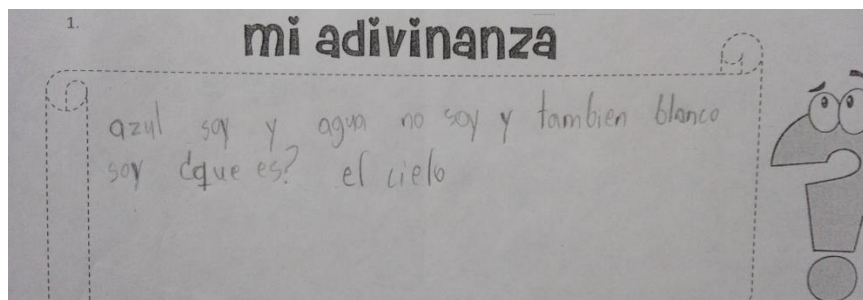 1.
mi adivinanza
azul soy y agua no soy y tambien blanco
soy ¿que es? el cielo